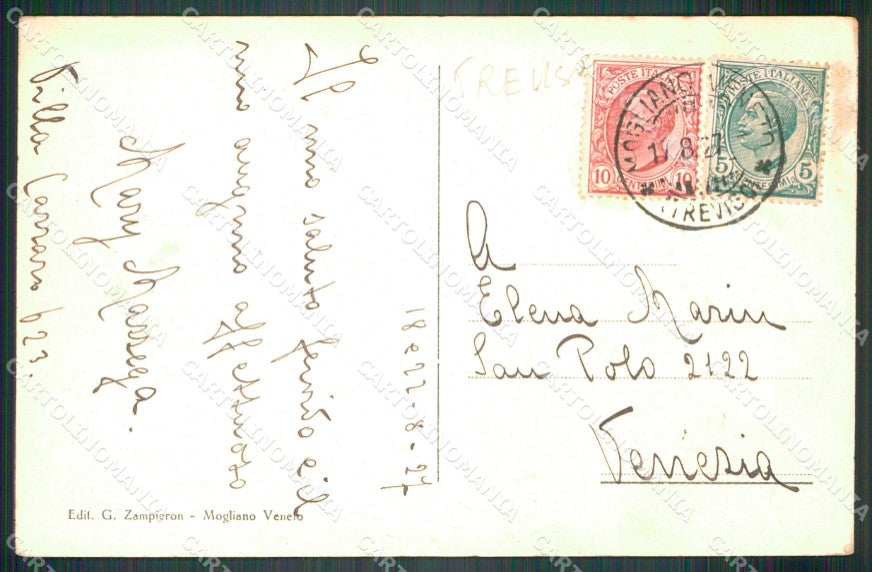 Il mio saluto fervido e il
mio augurio affettuoso
Mary Massega.
Villa Carraro 623.
18 e 22-8-27
TREVISO
POSTE ITALIANE
10 10
CENTESIMI
POSTE ITALIANE
5 5
CENTESIMI
MOGLIANO VENETO
17.8.27
(TREVISO)
A
Elena Marin
San Polo 2122
Venezia
Edit. G. Zampieron - Mogliano Veneto
CARTOLINOMANIA